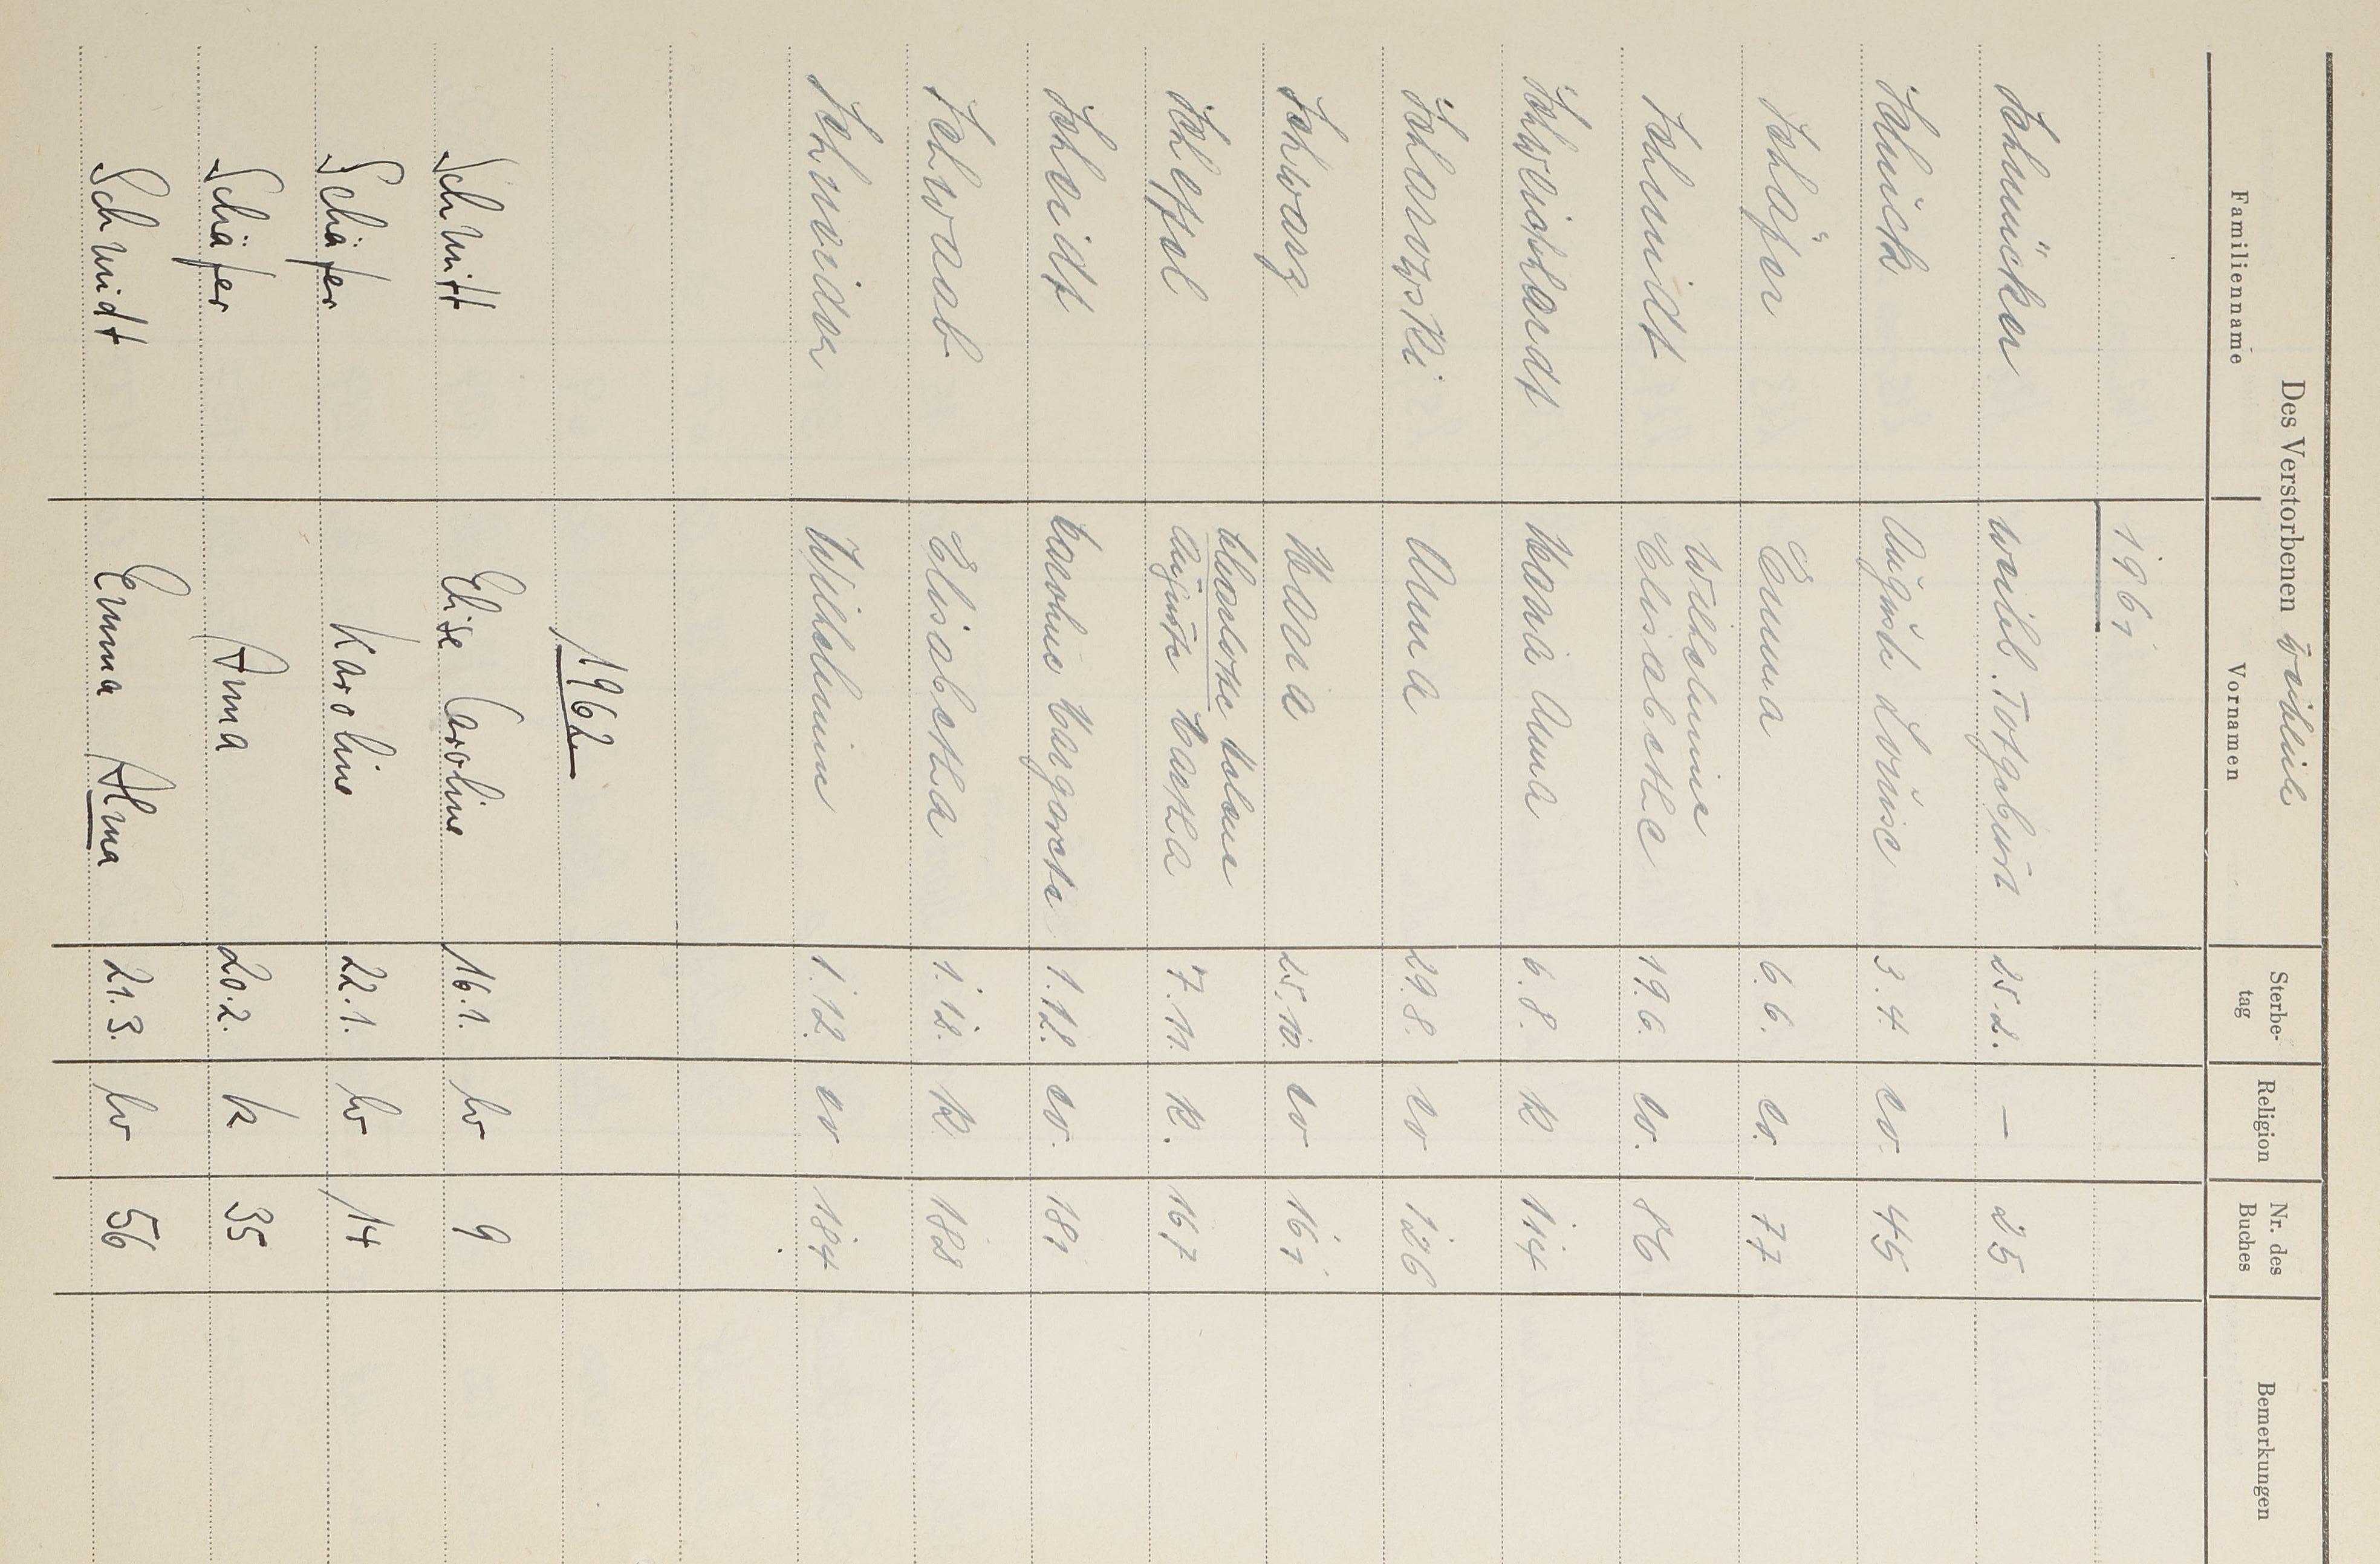 Des Verstorbenen weiblich
Familienname Vornamen Sterbe-tag Religion Nr. des Buches Bemerkungen
1961
Schmücker weibl. Totgeburt 25.2. – 25
Schück Auguste Louise 3.4. ev. 45
Schäfer Emma 6.6. ev. 77
Wilhelmine
Schmidt Elisabethe 19.6. ev. 86
Schweighardt Maria Anna 6.8. k 114
Anna 29.8. ev 126
Schwarz Maria 25.10. ev 161
Helene
Auguste Martha 7.11. k. 167
Scheidt Karoline Margarete 1.12. ev. 181
Schwaab Elisabetha 1.12. k. 182
Schneider Wilhelmine 1.12. ev 184
1962
Schmitt Elise Caroline 16.1. ev 9
Schäfer Karoline 22.1. ev 14
Schäfer Anna 20.2. k 35
Schmidt Emma Alma 21.3. ev 56